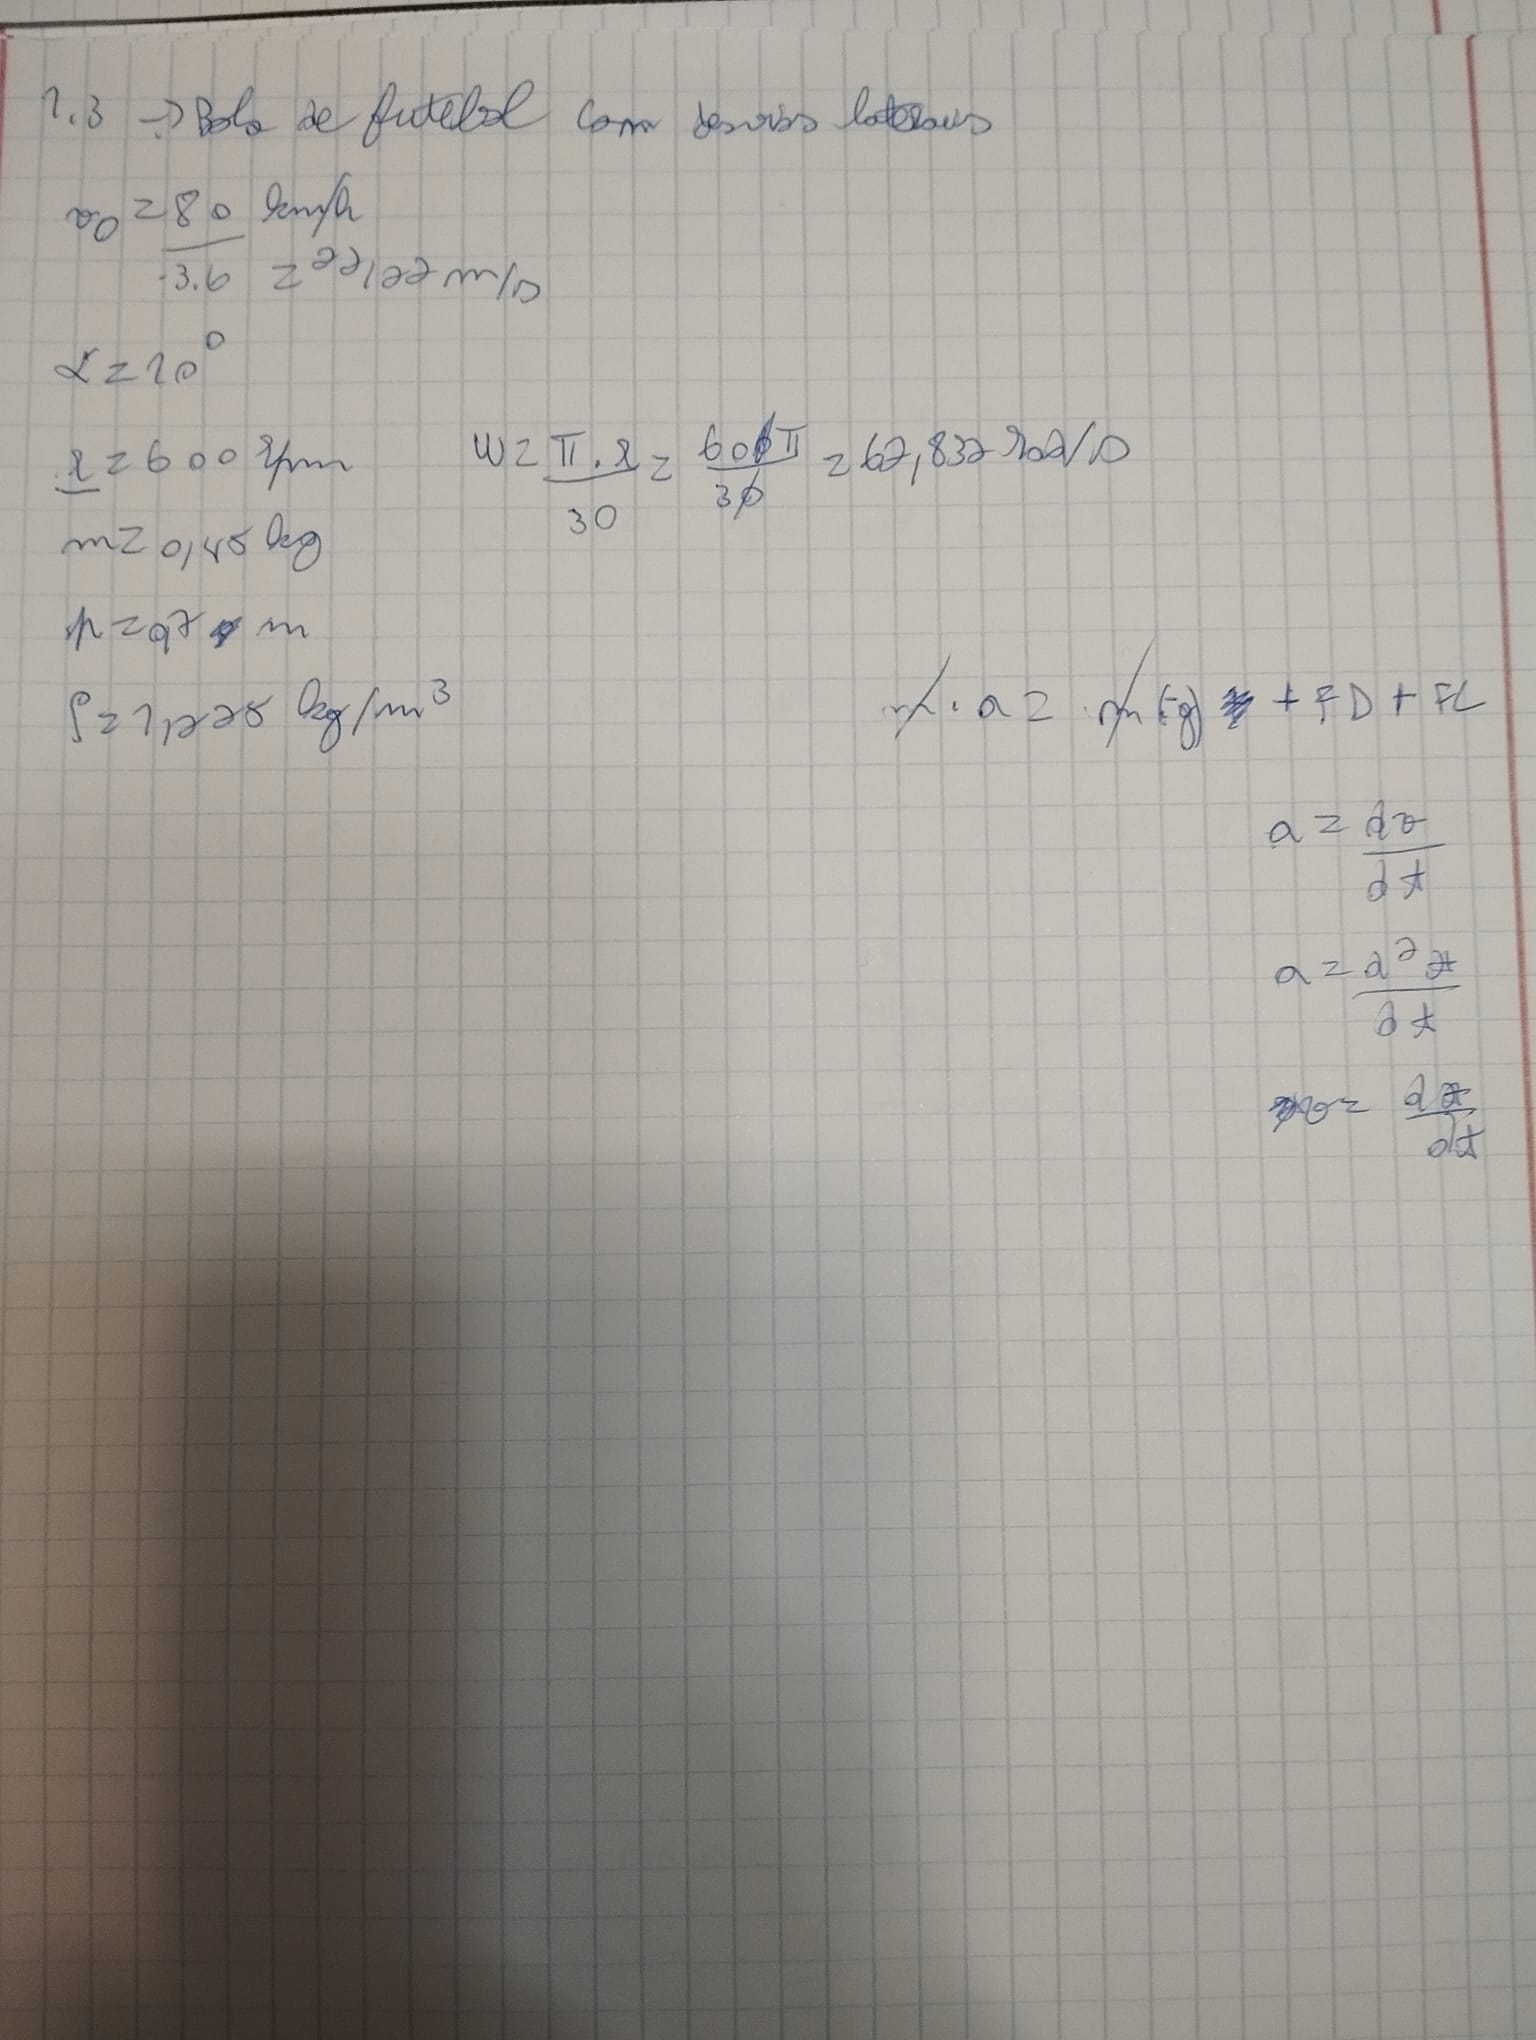 1.3 → Bola de futebol com desvios laterais
v0 = 80 km/h
3.6 = 22,22 m/s
α = 10°
r = 600 rpm w = π . r = 600π = 62,832 rad/s
30 30
m = 0,45 kg
m
ρ = 1,225 kg/m³ m . a = m (-g) + FD + FL
a = dv
dt
a = d²
dt
v = d
dt